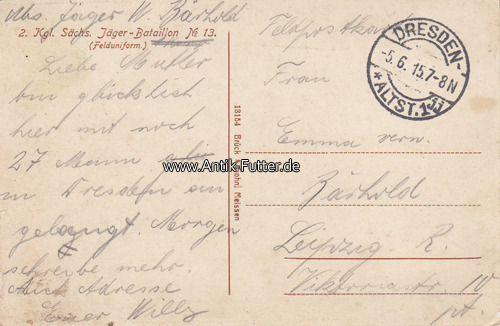 Abs. Jäger W. Bärhold
2. Kgl. Sächs. Jäger-Bataillon № 13.
(Felduniform.)
Liebe Mutter
bin glücklich
hier mit noch
27 Mann
in Dresden an
gelangt. Morgen
schreibe mehr.
Adresse
Euer Willy
13154 Brück Meissen
www.Antik-Futter.de
Feldpostkarte
Frau
Emma verw.
Bärhold
Leipzig R.
Viktoriastr 10
pt.
DRESDEN-
-5.6.15.7-8N
*ALTST.